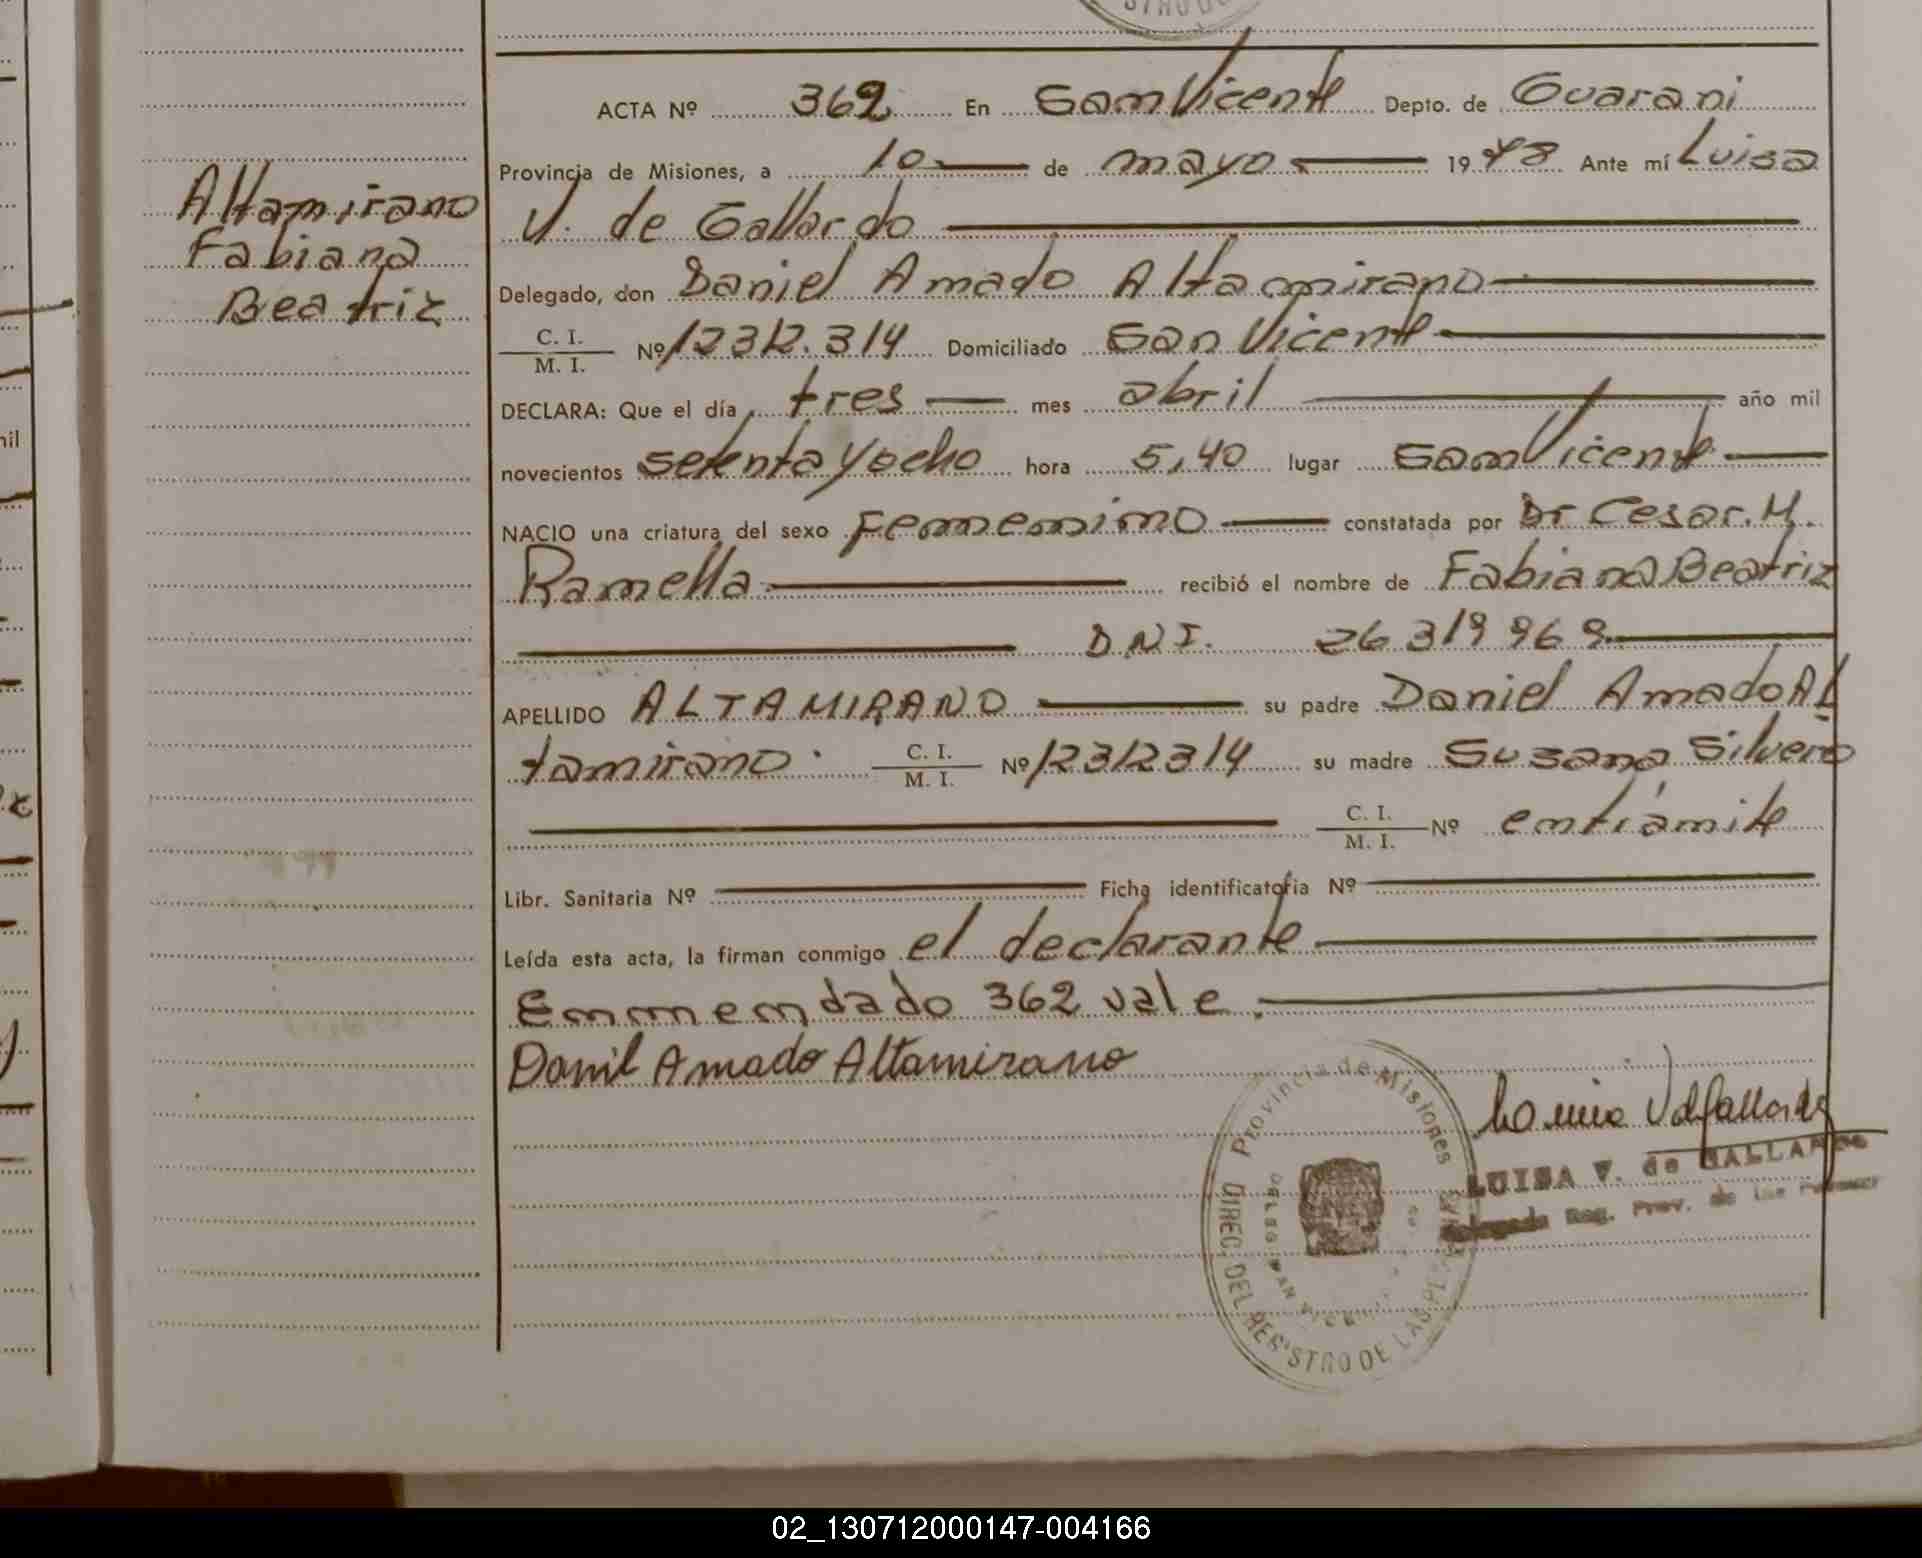 STRO DE
ACTA Nº 362 En San Vicente Depto. de Guarani
Provincia de Misiones, a 10 de mayo 1978 Ante mí Luisa
V. de Gallardo
Delegado, don Daniel Amado Altamirano
C. I.
M. I. Nº 12312.314 Domiciliado San Vicente
DECLARA: Que el día tres mes abril año mil
novecientos setenta y ocho hora 5,40 lugar San Vicente
NACIO una criatura del sexo Femenino constatada por Dr Cesar. M.
Ramella recibió el nombre de Fabiana Beatriz
D.N.I. 26 319 969
APELLIDO ALTAMIRANO su padre Daniel Amado Al
tamirano. C. I.
M. I. Nº 12312314 su madre Susana Silvero
C. I.
M. I. Nº en trámite
Libr. Sanitaria Nº Ficha identificatoria Nº
Leída esta acta, la firman conmigo el declarante
Enmendado 362 vale.
Altamirano
Fabiana
Beatriz
Daniel Amado Altamirano
Provincia de Misiones
DIREC. DEL REGISTRO DE LAS
LUISA V. de GALLARDO
Reg. Prov. de las
02_130712000147-004166